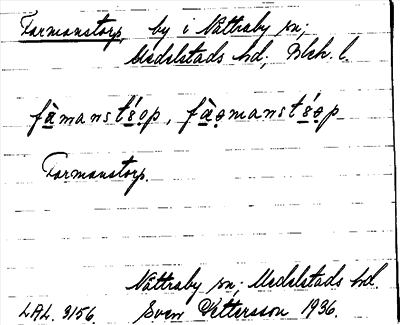 Formanstorp, by i Nättraby sn;
Medelstads hd; Blek. l.
fà̱mansтó̱p, fà̱manstó̱p
Formanstorp.
Nättraby sn; Medelstads hd
LAL. 3156. Sven Pettersson 1936.